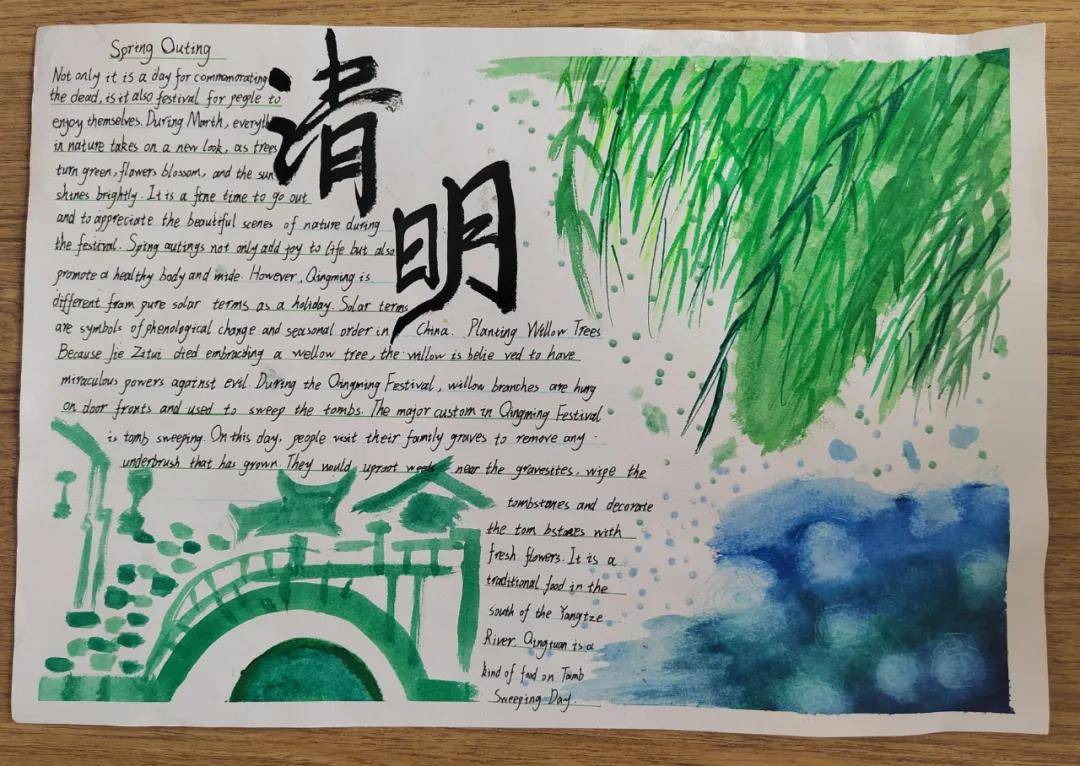 Spring Outing
清明
Not only it is a day for commomorating
the dead, is it also festival for people to
enjoy themselves. During March, everyth
in nature takes on a new look, as trees
turn green, flowers blossom, and the sun
shines brightly. It is a fine time to go out
and to appreciate the beautiful scenes of nature during
the festival. Sping outings not only add joy to life but also
promote a healthy body and mide. However, Qingming is
different from pure solar terms as a holiday. Solar terms
are symbols of phenological change and seasonal order in China. Planting Willow Trees
Because Jie Zitui died embracding a wellow tree, the willow is belie ved to have
miraculous powers against evil. During the Qingming Festival, willow branches are hung
on door fronts and used to sweep the tombs. The major custom in Qingming Festival
is tomb sweeping. On this day, people visit their family graves to remove any
underbrush that has grown. They would uproot weeds near the gravesites, wipe the
tombstones and decorate
the tom bstones with
fresh flowers. It is a
traditional food in the
south of the Yangtze
River. Qingtuan is a
kind of food on Tomb
Sweeping Day.